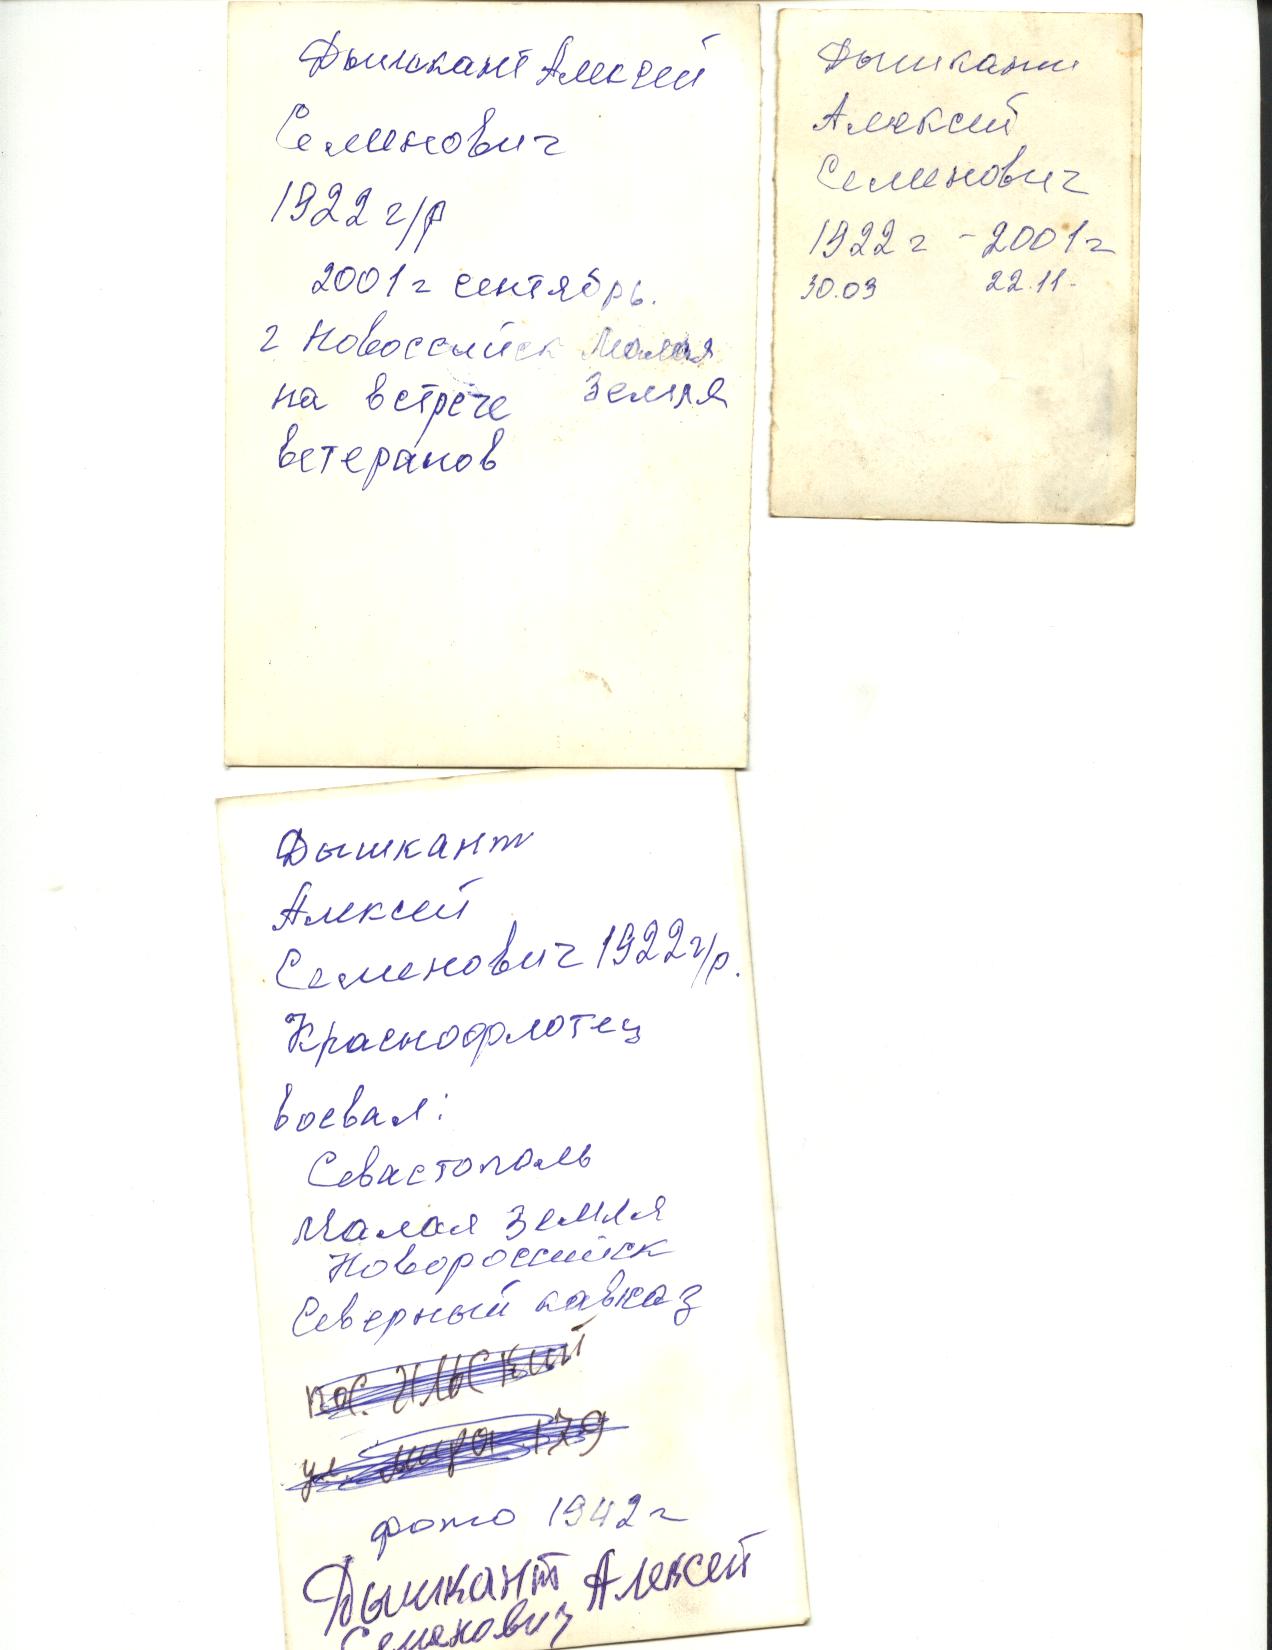 Дышкант Алексей
Семенович
1922 г/р
2001 г сентябрь.
г Новоссийск Малая
на встрече Земля
ветеранов
Дышкант
Алексей
Семенович
1922 г – 2001 г
30.03 22.11.
Дышкант
Алексей
Семенович 1922 г/р.
Краснофлотец
воевал:
Севастополь
Малая Земля
Новороссийск
Северный кавказ
пос. Ильский
ул. мира 179
фото 1942 г
Дышкант Алексей
Семенович